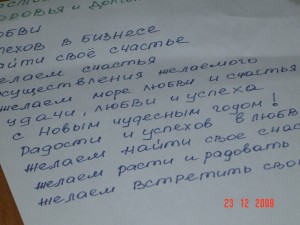 здоровья и долг
любви
успехов в бизнесе
найти своё счастье
желаем счастья
осуществления желаемого
желаем море любви и счастья
удачи, любви и успеха
с Новым чудесным годом!
Радости и успехов в любви
желаем найти своё счас
желаем расти и радовать
желаем встретить сво
23 12 2009